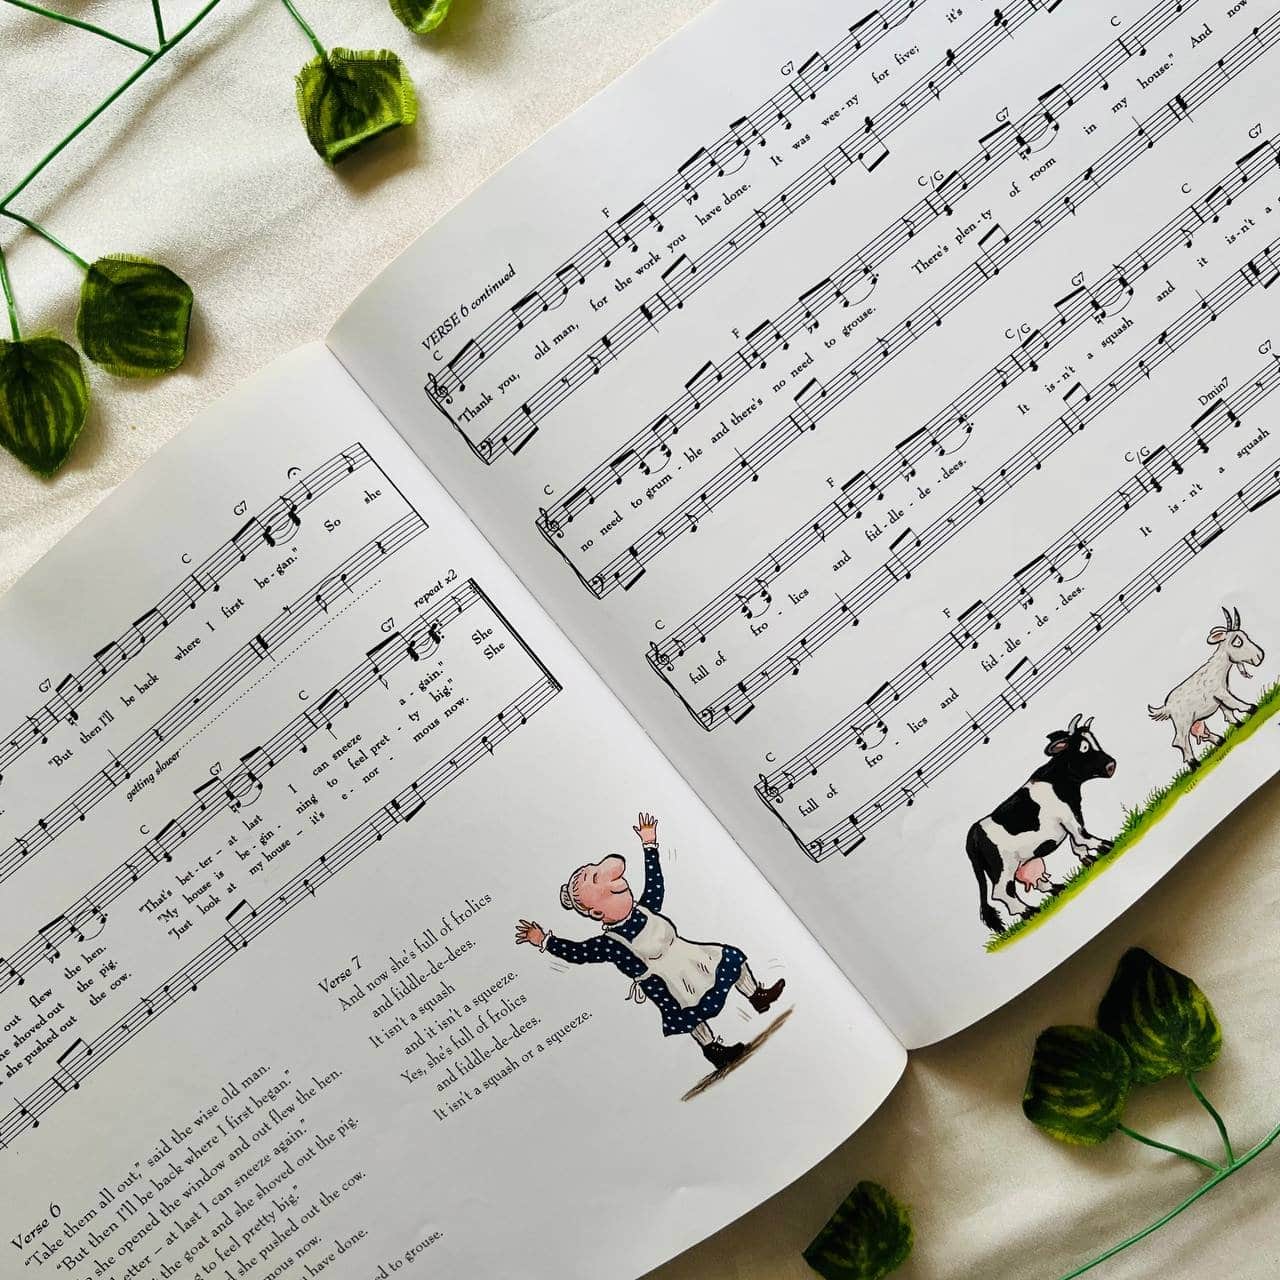 G7 C G7
"But then I'll be back where I first be-gan." So she
getting slower
C G7 C G7 repeat x2
out flew the hen. "That's bet - ter - at last I can sneeze a - gain." She
she shoved out the pig. "My house is be - gin - ning to feel pret - ty big." She
she pushed out the cow. "Just look at my house – it's e - nor - mous now.
Verse 6
"Take them all out," said the wise old man.
"But then I'll be back where I first began."
she opened the window and out flew the hen.
etter – at last I can sneeze again."
the goat and she shoved out the pig.
to feel pretty big."
she pushed out the cow.
mous now.
have done.
ed to grouse.
Verse 7
And now she's full of frolics
and fiddle-de-dees.
It isn't a squash
and it isn't a squeeze.
Yes, she's full of frolics
and fiddle-de-dees.
It isn't a squash or a squeeze.
VERSE 6 continued
C F G7
"Thank you, old man, for the work you have done. It was wee - ny for five; it's
C F C/G G7 C
no need to grum - ble and there's no need to grouse. There's plen - ty of room in my house." And now
C F C/G G7 C G7
full of fro - lics and fid - dle - de - dees. It is - n't a squash and it is - n't a
C F C/G Dmin7 G7
full of fro - lics and fid - dle - de - dees. It is - n't a squash